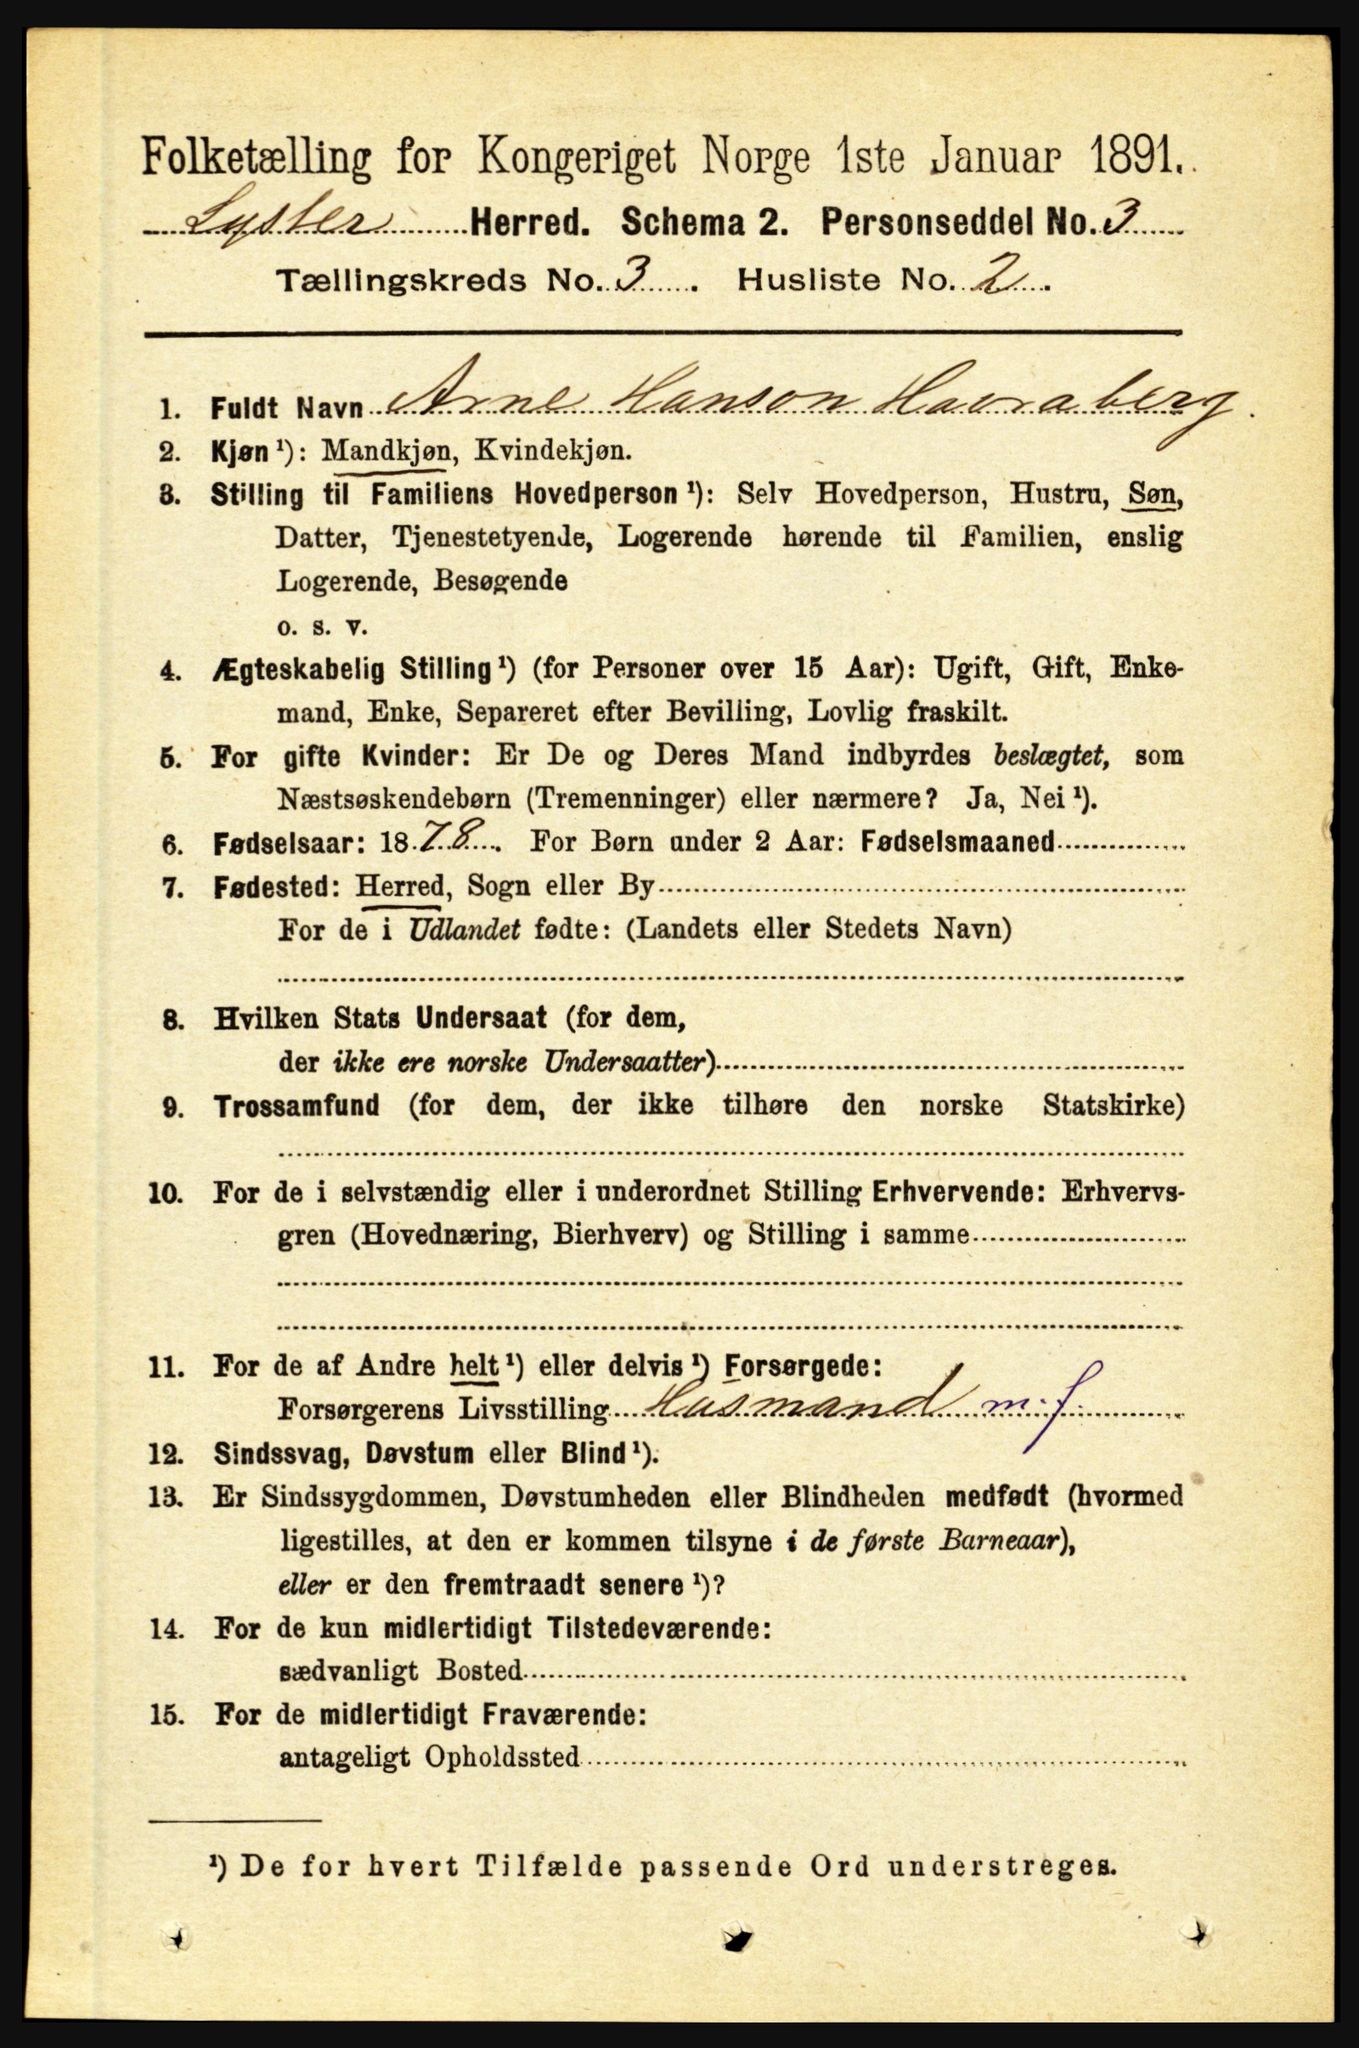 Folketælling for Kongeriget Norge 1ste Januar 1891.
Lyster Herred. Schema 2. Personseddel No. 3
Tællingskreds No. 3. Husliste No. 2.
1. Fuldt Navn Arne Hanson Havraberg.
2. Kjøn ¹): Mandkjøn, Kvindekjøn.
3. Stilling til Familiens Hovedperson ¹): Selv Hovedperson, Hustru, Søn,
Datter, Tjenestetyende, Logerende hørende til Familien, enslig
Logerende, Besøgende
o. s. v.
4. Ægteskabelig Stilling ¹) (for Personer over 15 Aar): Ugift, Gift, Enke-
mand, Enke, Separeret efter Bevilling, Lovlig fraskilt.
5. For gifte Kvinder: Er De og Deres Mand indbyrdes beslægtet, som
Næstsøskendebørn (Tremenninger) eller nærmere? Ja, Nei ¹).
6. Fødselsaar: 1878. For Børn under 2 Aar: Fødselsmaaned
7. Fødested: Herred, Sogn eller By
For de i Udlandet fødte: (Landets eller Stedets Navn)
8. Hvilken Stats Undersaat (for dem,
der ikke ere norske Undersaatter)
9. Trossamfund (for dem, der ikke tilhøre den norske Statskirke)
10. For de i selvstændig eller i underordnet Stilling Erhvervende: Erhvervs-
gren (Hovednæring, Bierhverv) og Stilling i samme
11. For de af Andre helt ¹) eller delvis ¹) Forsørgede:
Forsørgerens Livsstilling Husmand m. j.
12. Sindssvag, Døvstum eller Blind ¹).
13. Er Sindssygdommen, Døvstumheden eller Blindheden medfødt (hvormed
ligestilles, at den er kommen tilsyne i de første Barneaar),
eller er den fremtraadt senere ¹)?
14. For de kun midlertidigt Tilstedeværende:
sædvanligt Bosted
15. For de midlertidigt Fraværende:
antageligt Opholdssted
¹) De for hvert Tilfælde passende Ord understreges.